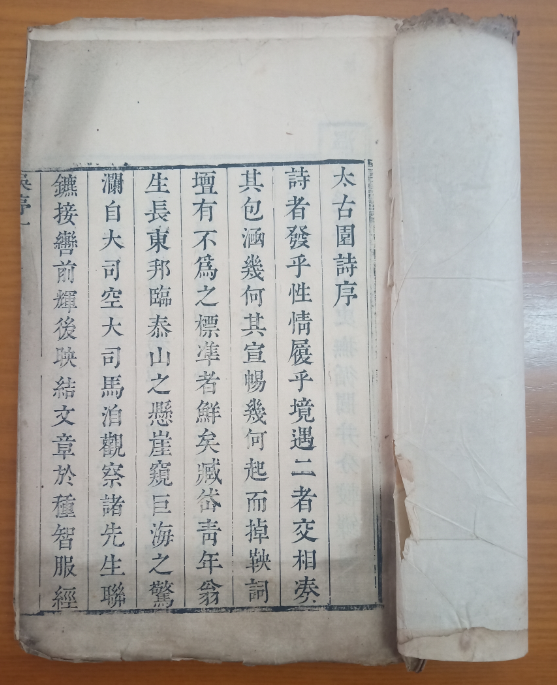 太古園詩序
詩者發乎性情履乎境遇二者交相奏
其包涵幾何其宣暢幾何起而掉鞅詞
壇有不爲之標凖者鮮矣臧青年翁
生長東邦臨泰山之懸崖窺巨海之驚
瀾自大司空大司馬洎觀察諸先生聯
鑣接轡前輝後映結文章於種智服經